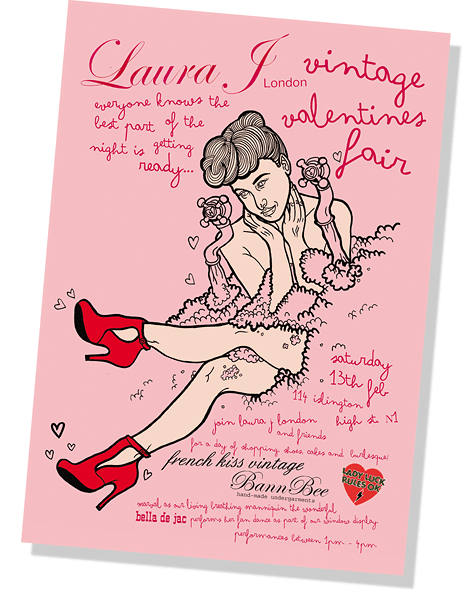 Laura J London
vintage
valentines
fair
everyone knows the
best part of the
night is getting
ready...
saturday
13th feb
114 islington
high st N1
join laura j london
and friends
for a day of shopping shoes cakes and burlesque!
french kiss vintage
BannBee
hand-made undergarments
LADY LUCK
RULES OK
marvel as our living breathing mannequin the wonderful
bella de jac performs her fan dance as part of our window display
performances between 1pm - 4pm